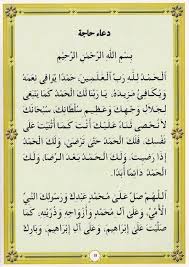 دعاء حاجة
بِسْمِ اللَّهِ الرَّحْمَنِ الرَّحِيْمِ
اَلْحَمْدُ لِلَّهِ رَبِّ الْعَالَمِيْنَ، حَمْدًا يُوَافِي نِعَمَهُ
وَيُكَافِئُ مَزِيْدَهُ، يَا رَبَّنَا لَكَ الْحَمْدُ كَمَا يَنْبَغِي
لِجَلَالِ وَجْهِكَ وَعَظِيْمِ سُلْطَانِكَ، سُبْحَانَكَ
لَا نُحْصِي ثَنَاءً عَلَيْكَ أَنْتَ كَمَا أَثْنَيْتَ عَلَى
نَفْسِكَ، فَلَكَ الْحَمْدُ حَتَّى تَرْضَى، وَلَكَ الْحَمْدُ
إِذَا رَضِيْتَ، وَلَكَ الْحَمْدُ بَعْدَ الرِّضَا، وَلَكَ
الْحَمْدُ دَائِمًا أَبَدًا.
اَللَّهُمَّ صَلِّ عَلَى مُحَمَّدٍ عَبْدِكَ وَرَسُوْلِكَ النَّبِيِّ
الْأُمِّيِّ، وَعَلَى آلِ مُحَمَّدٍ وَأَزْوَاجِهِ وَذُرِّيَّتِهِ، كَمَا
صَلَّيْتَ عَلَى إِبْرَاهِيْمَ، وَعَلَى آلِ إِبْرَاهِيْمَ، وَبَارِكْ